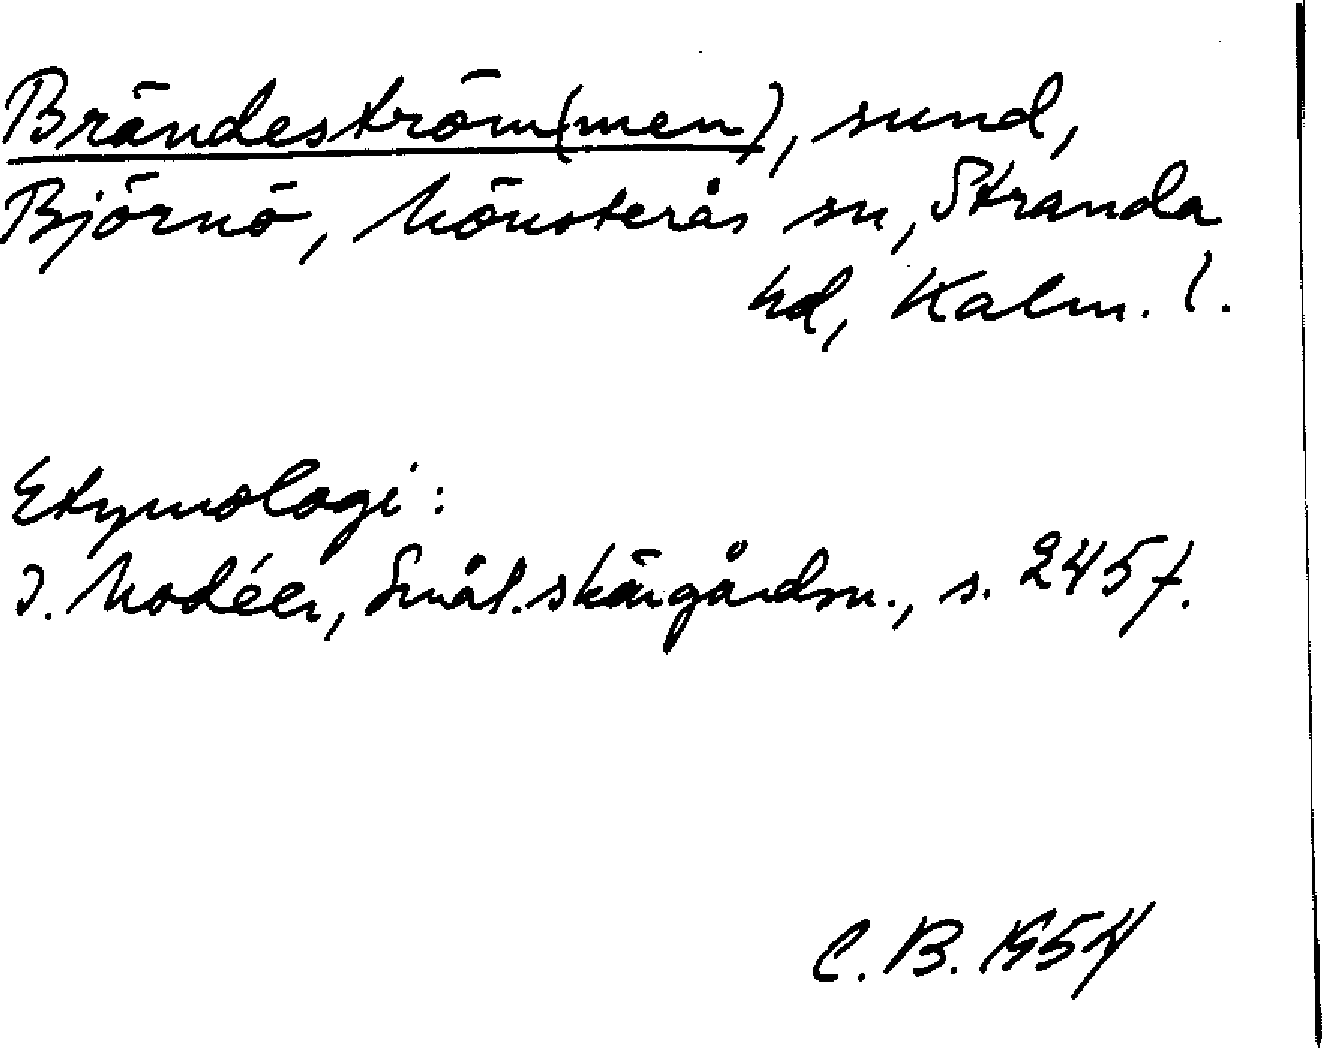 Brändeström(men), sund,
Björnö, Mönsterås sn, Stranda
hd, Kalm. l.
Etymologi:
I. Modéer, Smål. skärgårdsn., s. 245 f.
C. B. 1954